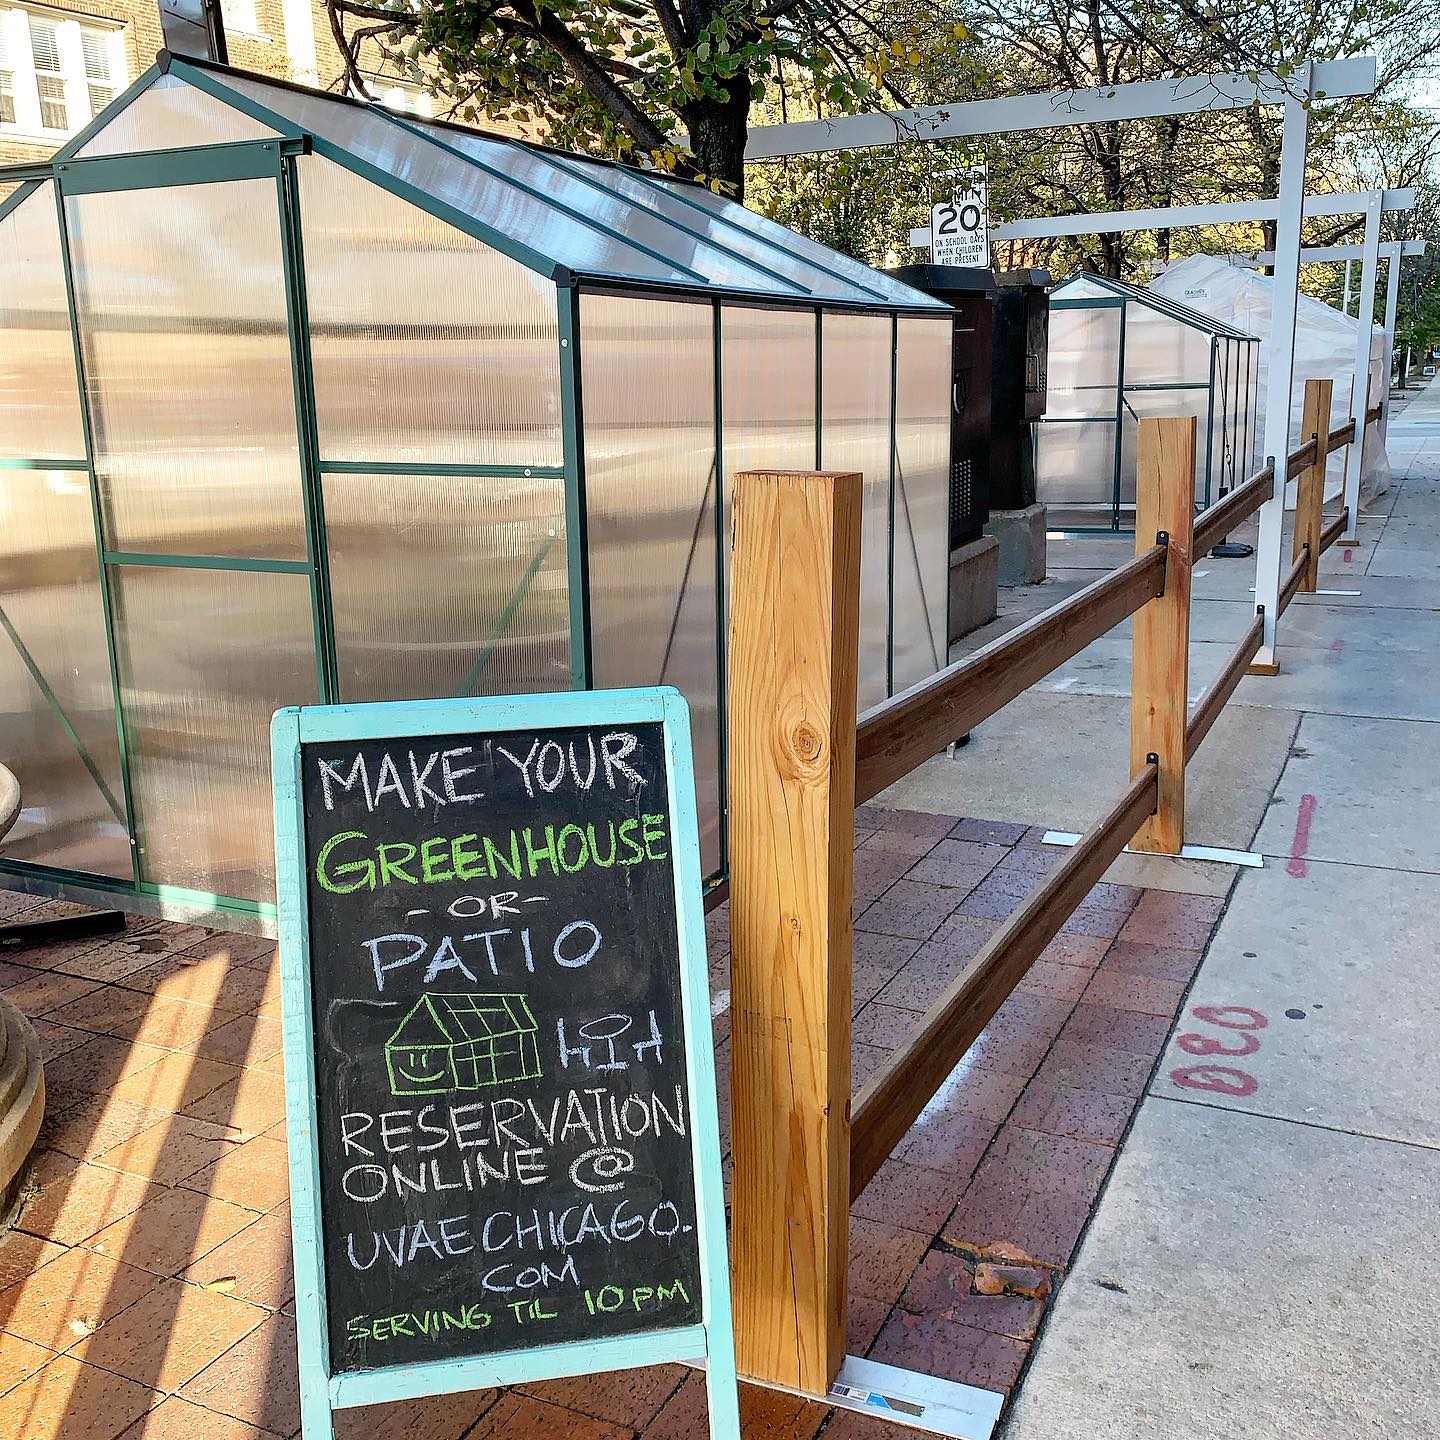 MAKE YOUR
GREENHOUSE
- OR -
PATIO
RESERVATION
ONLINE @
UVAECHICAGO.
COM
SERVING TIL 10PM
20
ON SCHOOL DAYS
WHEN CHILDREN
ARE PRESENT